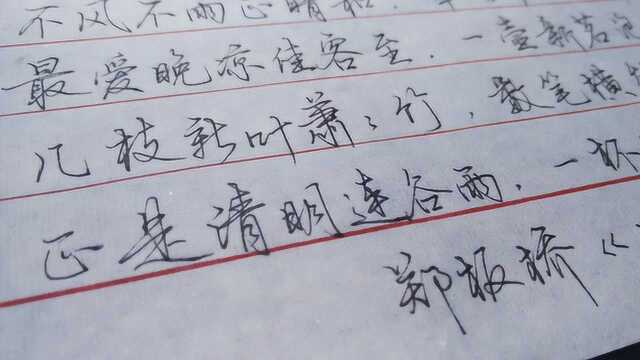 不风不雨正晴和.
最爱晚凉佳客至.一壶新茗泡
几枝新叶萧〻竹,数笔横
正是清明连谷雨.一杯
郑板桥《